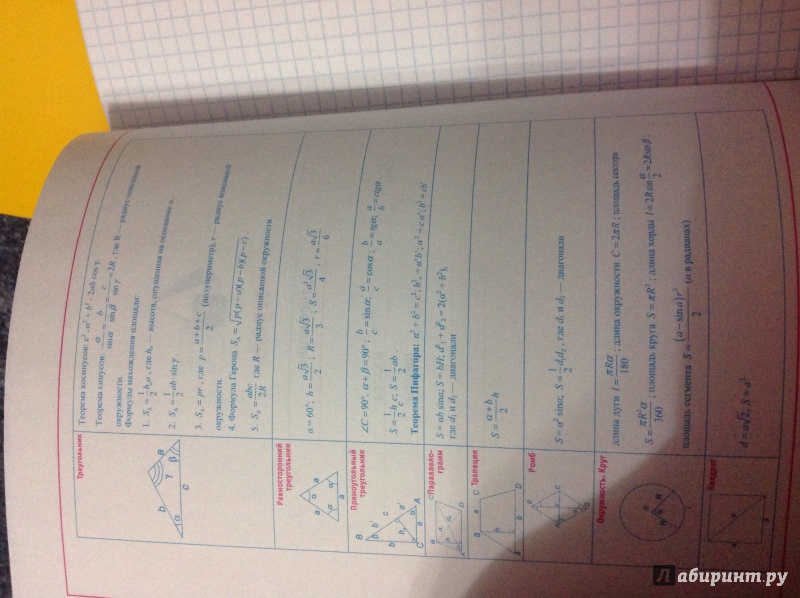 Треугольник
Теорема косинусов: c² = a² + b² - 2ab cos γ.
Теорема синусов: a/sin α = b/sin β = c/sin γ = 2R, где R — радиус описанной
окружности.
Формулы нахождения площади:
1. S = 1/2 hₐa, где hₐ — высота, опущенная на основание a.
2. S = 1/2 ab·sin γ
3. S = pr, где p = (a + b + c)/2 (полупериметр), r — радиус вписанной
окружности.
4. Формула Герона S = √(p(p − a)(p − b)(p − r))
5. S = abc/2R где R — радиус описанной окружности
Равносторонний
треугольник
α = 60°; h = a√3/2; R = a√3/3; S = a²√3/4; r = a√3/6
Прямоугольный
треугольник
∠C = 90°, α + β = 90°; b/c = sin α; a/c = cos α; b/a = tgα; a/b = ctgα
S = 1/2 h c; S = 1/2 ab.
Теорема Пифагора: a² + b² = c²; a² = c a'; b² = cb'
Параллело-
грамм
S = ab sinα; d²₁ + d²₂ = 2(a² + b²),
где d₁ и d₂ — диагонали
Трапеция
S = (a + b)/2 h
Ромб
S = a² sinα; S = 1/2 d₁d₂, где d₁ и d₂ — диагонали
Окружность. Круг
длина дуги l = πRα/180; длина окружности C = 2πR; площадь сектора
S = πR²α/360; площадь круга S = πR²; длина хорды l = 2R sin α/2 = 2R sin β;
площадь сегмента S = (α − sin α)r²/2 (α в радианах)
Квадрат
d = a√2, S = a²
Лабиринт.ру